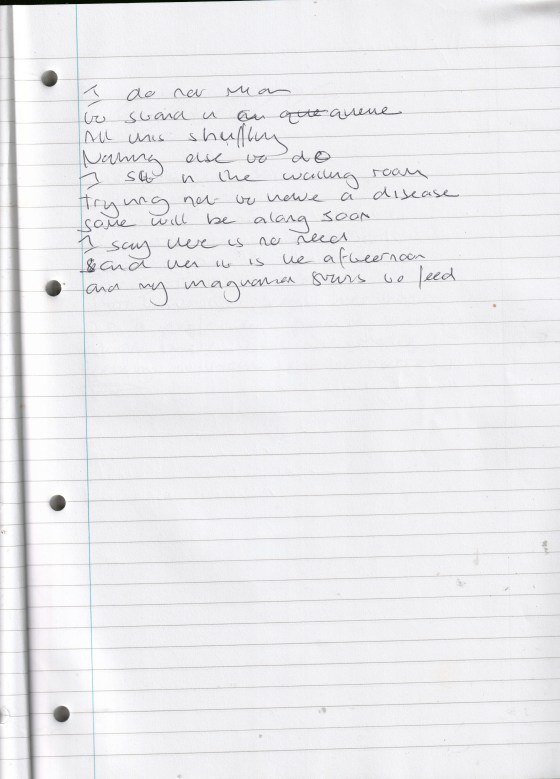 I do not mean
to stand in an que queue
All this shuffling
Nothing else to do
I sit in the waiting room
trying not to have a disease
some will be along soon
I say there is no need
and then it is the afternoon
and my starts to feed